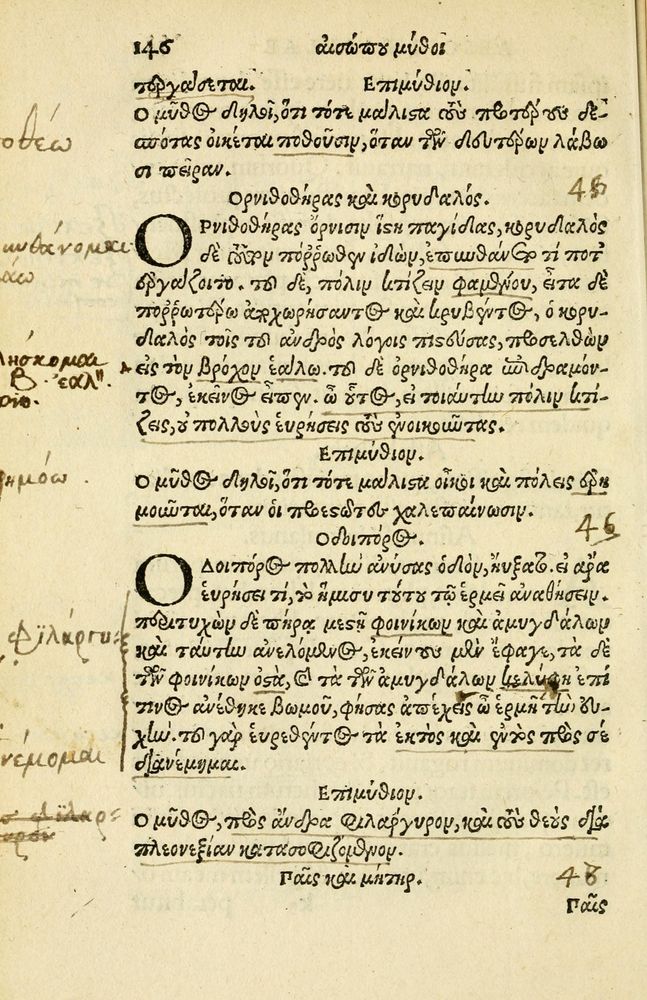 146 αἰσώπου μῦθοι
τεργάσεται. Ἐπιμύθιον.
Ο μῦθος δηλοῖ, ὅτι τότε μάλιστα τοὺς πρώτους δε-
σπότας οἰκέται ποθοῦσιν, ὅταν τῶν δευτέρων λάβω
σι πεῖραν.
Ορνιθοθήρας καὶ κορυδαλός. 45
ΟΡνιθοθήρας ὄρνισιν ἵστη παγίδας, κορυδαλὸς
δὲ τοῦτον πόρρωθεν ἰδὼν, ἐπυνθάνετο τί ποτ᾽
ἐργάζοιτο. τοῦ δὲ, πόλιν κτίζειν φαμένου, εἶτα δὲ
πορρωτέρω ἀποχωρήσαντος καὶ κρυβέντος, ὁ κορυ-
δαλὸς τοῖς τοῦ ἀνδρὸς λόγοις πιστεύσας, προσελθὼν
εἰς τὸν βρόχον ἑάλω. τοῦ δὲ ὀρνιθοθήρα ἐπιδραμόν-
τος, ἐκεῖνος εἶπεν. ὦ οὗτος, εἰ τοιαύτην πόλιν κτί-
ζεις, οὐ πολλοὺς εὑρήσεις τοὺς ἐνοικοῦντας.
Ἐπιμύθιον.
Ο μῦθος δηλοῖ, ὅτι τότε μάλιστα οἶκοι καὶ πόλεις ἐρη
μοῦνται, ὅταν οἱ προεστῶτες χαλεπαίνωσιν.
Οδοιπόρος. 46
ΟΔοιπόρος πολλὴν ἀνύσας ὁδὸν, ηὔξατο. εἰ ἄρα
εὑρήσει τί, τὸ ἥμισυ τούτου τῷ ἑρμεῖ ἀναθήσειν.
περιτυχὼν δὲ πήρᾳ μεστῇ φοινίκων καὶ ἀμυγδάλων
καὶ ταύτην ἀνελόμενος, ἐκείνους μὲν ἔφαγε, τὰ δὲ
τῶν φοινίκων ὀστᾶ, καὶ τὰ τῶν ἀμυγδάλων κελύφη ἐπί
τινος ἀνέθηκε βωμοῦ, φήσας ἀπέχεις ὦ ἑρμῆ τὴν εὐ-
χήν. τοῦ γὰρ εὑρεθέντος τὰ ἐκτὸς καὶ ἐντὸς πρὸς σὲ
διανέμημαι.
Ἐπιμύθιον.
Ο μῦθος, πρὸς ἄνδρα φιλάργυρον, καὶ τοὺς θεοὺς διὰ
πλεονεξίαν κατασοφιζόμενον.
Παῖς καὶ μήτηρ. 48
Παῖς
οθέω
υνθάνομαι
άω
λίσκομαι
β. ἑαλ".
ημόω.
Φιλάργυ
νέμομαι